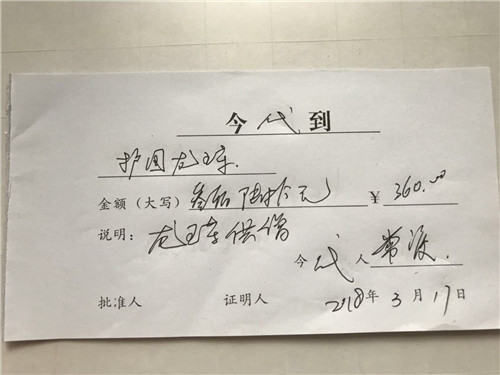 今代到
护国龙王寺
金额（大写）叁佰陆拾元 ￥360.00
说明：龙王寺供僧
今代人
批准人 证明人 2018年3月17日